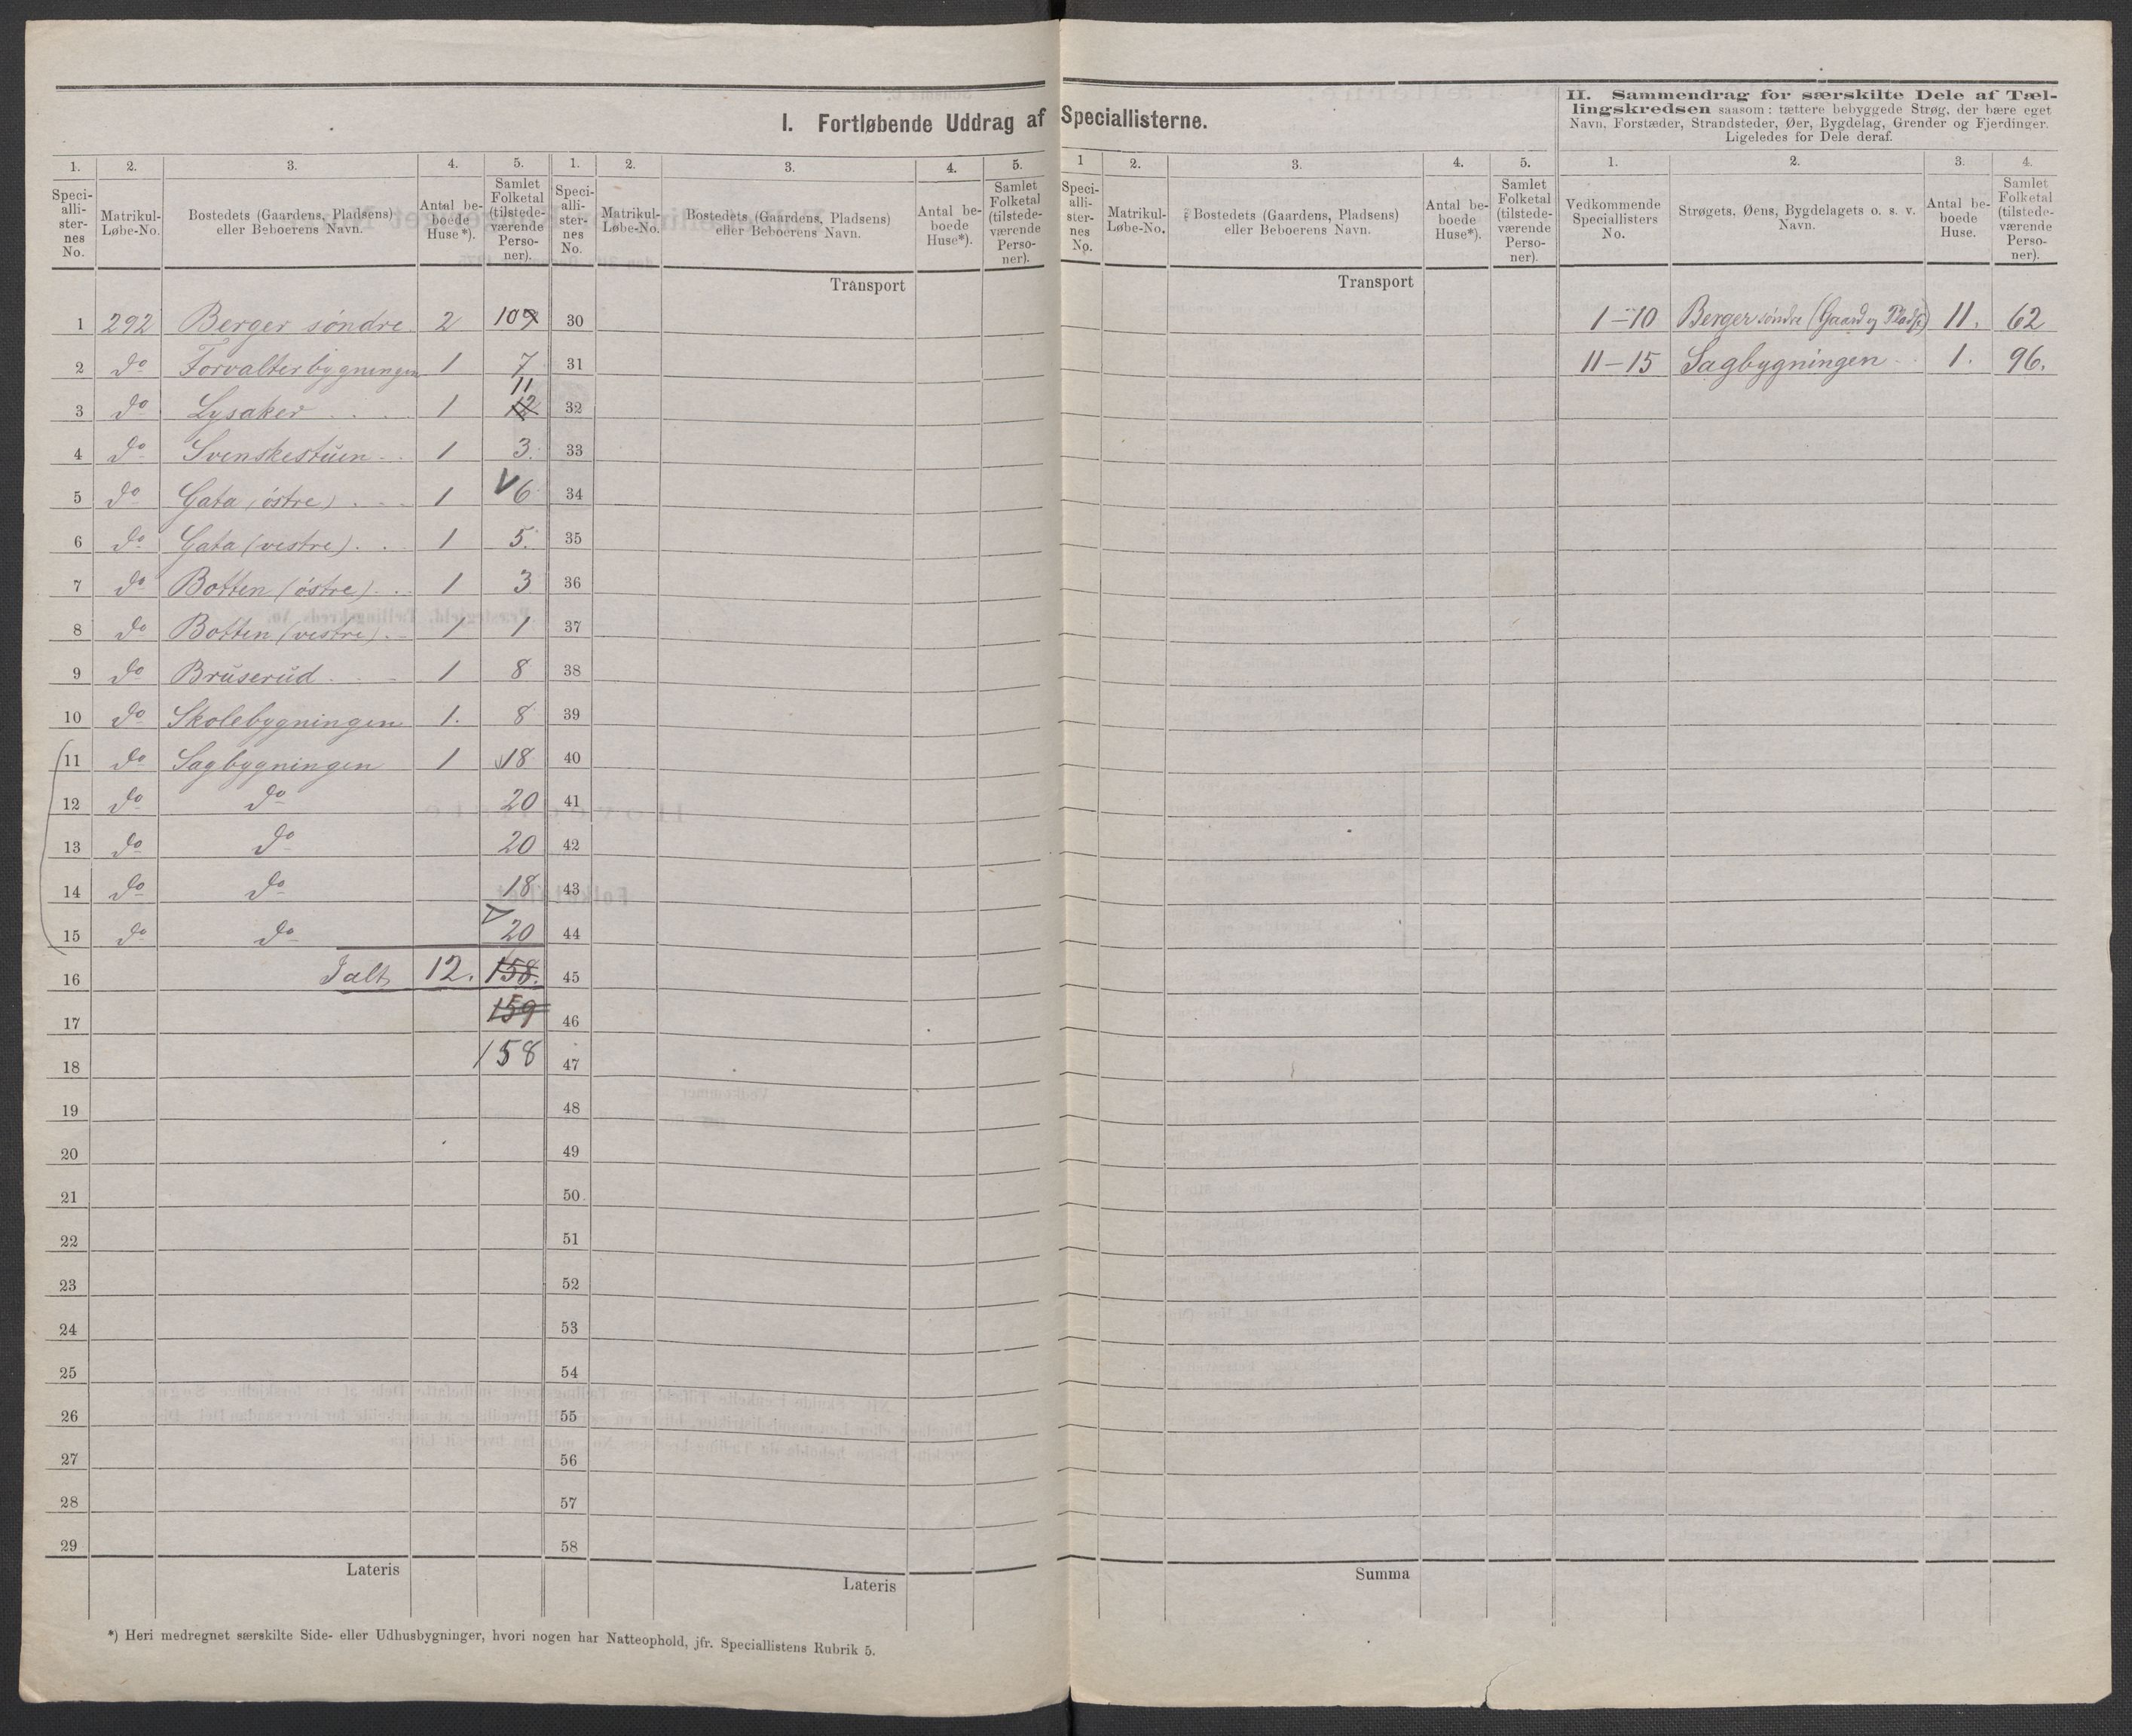 I. Fortløbende Uddrag af Speciallisterne.
II. Sammendrag for særskilte Dele af Tæl-
lingskredsen saasom: tættere bebyggede Strøg, der bære eget
Navn, Forstæder, Strandsteder, Øer, Bygdelag, Grender og Fjerdinger.
Ligeledes for Dele deraf.
1. 2. 3. 4. 5. 1. 2. 3. 4. 5. 1 2. 3. 4. 5. 1. 2. 3. 4.
Speci-
alli-
ster-
nes
No.
Matrikul-
Løbe-No.
Bostedets (Gaardens, Pladsens)
eller Beboerens Navn.
Antal be-
boede
Huse*).
Samlet
Folketal
(tilstede-
værende
Perso-
ner).
Speci-
alli-
ster-
nes
No.
Matrikul-
Løbe-No.
Bostedets (Gaardens, Pladsens)
eller Beboerens Navn.
Antal be-
boede
Huse*).
Samlet
Folketal
(tilstede-
værende
Perso-
ner).
Speci-
alli-
ster-
nes
No.
Matrikul-
Løbe-No.
Bostedets (Gaardens, Pladsens)
eller Beboerens Navn.
Antal be-
boede
Huse*).
Samlet
Folketal
(tilstede-
værende
Perso-
ner).
Vedkommende
Speciallisters
No.
Strøgets, Øens, Bygdelagets o. s. v.
Navn.
Antal be-
boede
Huse.
Samlet
Folketal
(tilstede-
værende
Perso-
ner).
Transport
Transport
1 292 Berger söndre 2 10 30
2 do Forvalterbygningen 1 7 31
11
3 do Lysaker 1 12 32
4 do Svenskestuen 1 3. 33
5 do Gata (östre) 1 6 34
6 do Gata (vestre) 1 5. 35
7 do Botten (östre) 1 3 36
8 do Botten (vestre) 1 1 37
9 do Bruserud 1 8 38
10 do Skolebygningen 1. 8 39
11 do Sagbygningen 1 18 40
12 do do 20 41
13 do do 20 42
14 do do 18 43
15 do do 20 44
16 Ialt 12. 158. 45
17 159 46
18 158 47
19 48
20 49
21 50
22 51
23 52
24 53
25 54
26 55
27 56
28 57
29 58
Lateris
Lateris
Summa
1-10 Berger söndre (Gaard og Pladse) 11. 62
11-15 Sagbygningen 1. 96.
*) Heri medregnet særskilte Side- eller Udhusbygninger, hvori nogen har Natteophold, jfr. Speciallistens Rubrik 5.